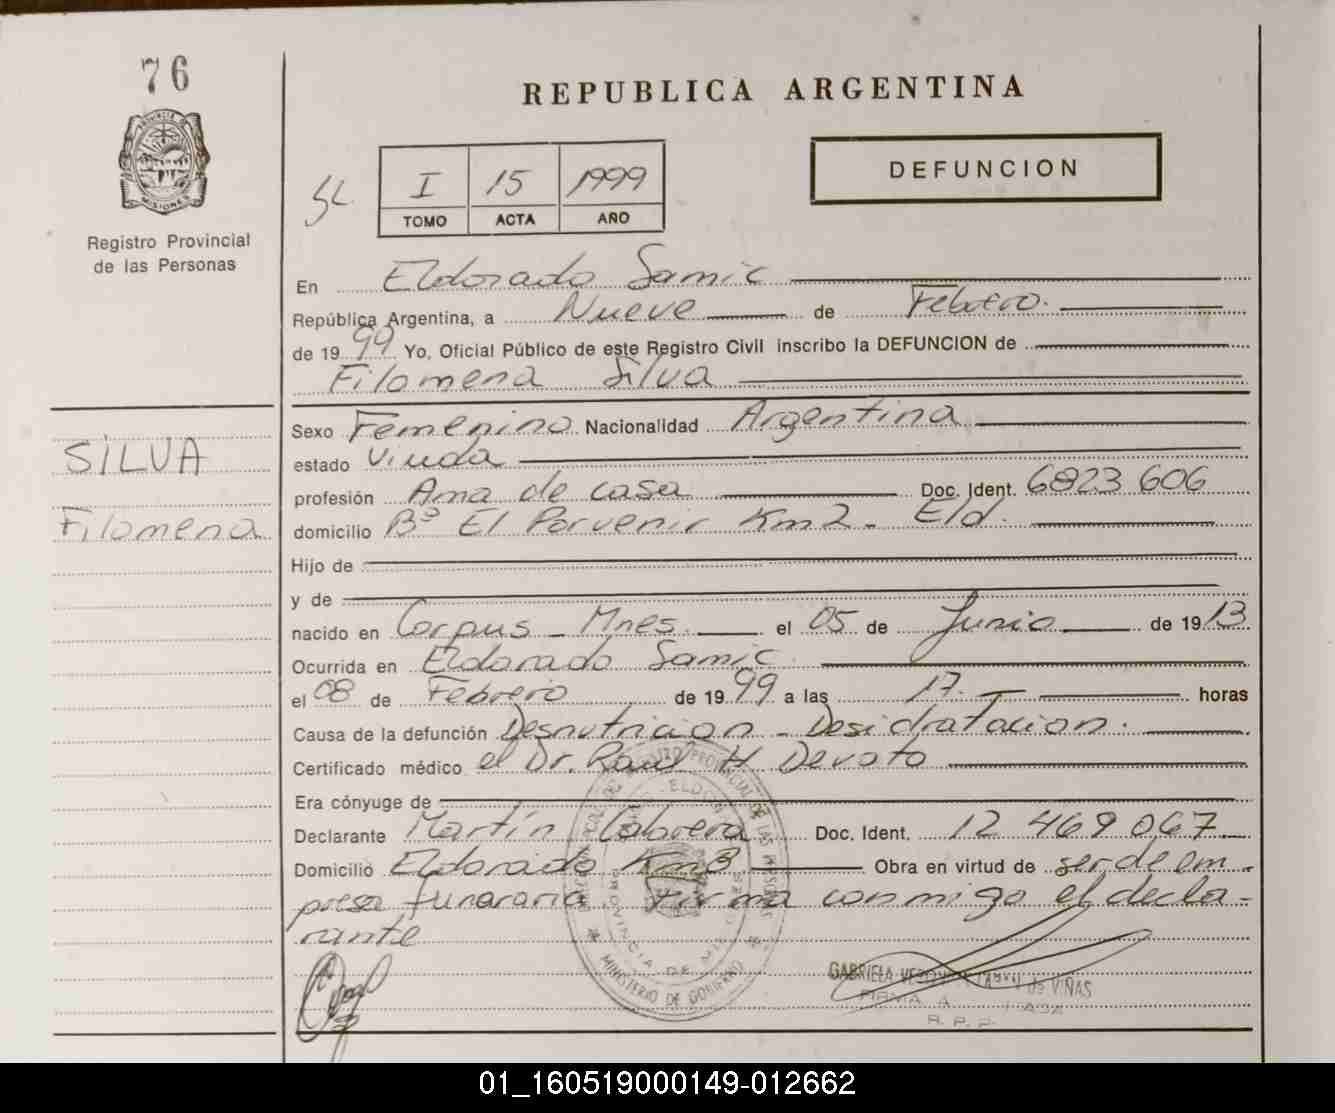 76
PROVINCIA DE
MISIONES
Registro Provincial
de las Personas
REPUBLICA ARGENTINA
DEFUNCION
I 15 1999
TOMO ACTA AÑO
En Eldorado Samic
República Argentina, a Nueve de Febrero.
de 1999 Yo, Oficial Público de este Registro Civil inscribo la DEFUNCION de
Filomena Silva
SILVA
Filomena
Sexo Femenino Nacionalidad Argentina
estado Viuda
profesión Ama de casa Doc. Ident. 6823 606
domicilio Bº El Porvenir Km2 - Eld.
Hijo de
y de
nacido en Corpus - Mnes. el 05 de Junio de 1913
Ocurrida en Eldorado Samic
el 08 de Febrero de 1999 a las 17. horas
Causa de la defunción Desnutricion - Desidratacion.
Certificado médico el Dr. Raul H Devoto
Era cónyuge de
Declarante Martín Cabrera Doc. Ident. 12 469 067
Domicilio Eldorado Km3 Obra en virtud de ser de em-
presa funararia. Firma conmigo el decla-
rante
PROVINCIA DE
MINISTERIO DE GOBIERNO
GABRIELA de VIÑAS
FIRMA A
R. P. P.
01_160519000149-012662